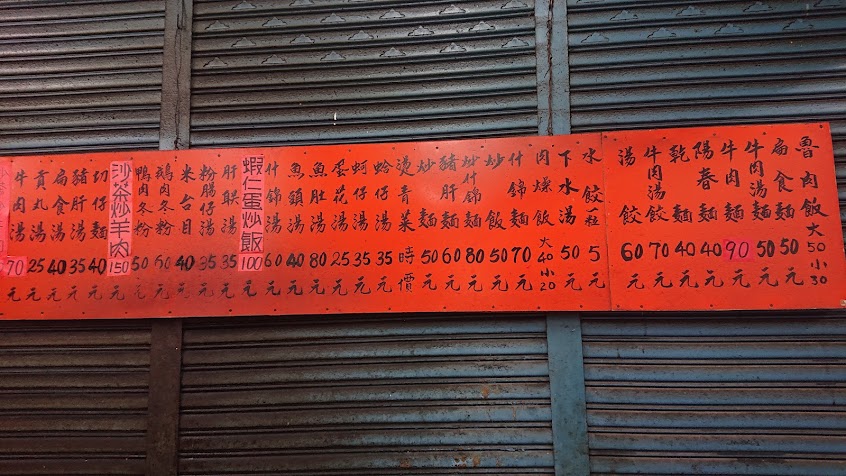 魯肉飯大50小30
扁食麵50元
牛肉湯麵50元
牛肉麵90元
陽春麵40元
乾麵40元
牛肉湯餃70元
湯餃60元
水餃一粒5元
下水湯50元
肉燥飯大40小20元
什錦飯70元
炒飯50元
炒什錦麵80元
豬肝麵60元
炒麵50元
燙青菜時價
蛤仔湯35元
蚵仔湯35元
蛋花湯25元
魚肚湯80元
魚頭湯40元
什錦湯60元
蝦仁蛋炒飯100元
肝湯35元
粉腸仔湯35元
米台目40元
鵝肉冬粉60元
鴨肉冬粉50元
沙茶炒羊肉150元
切仔麵40元
豬肝湯35元
扁食湯40元
貢丸湯25元
牛肉湯70元